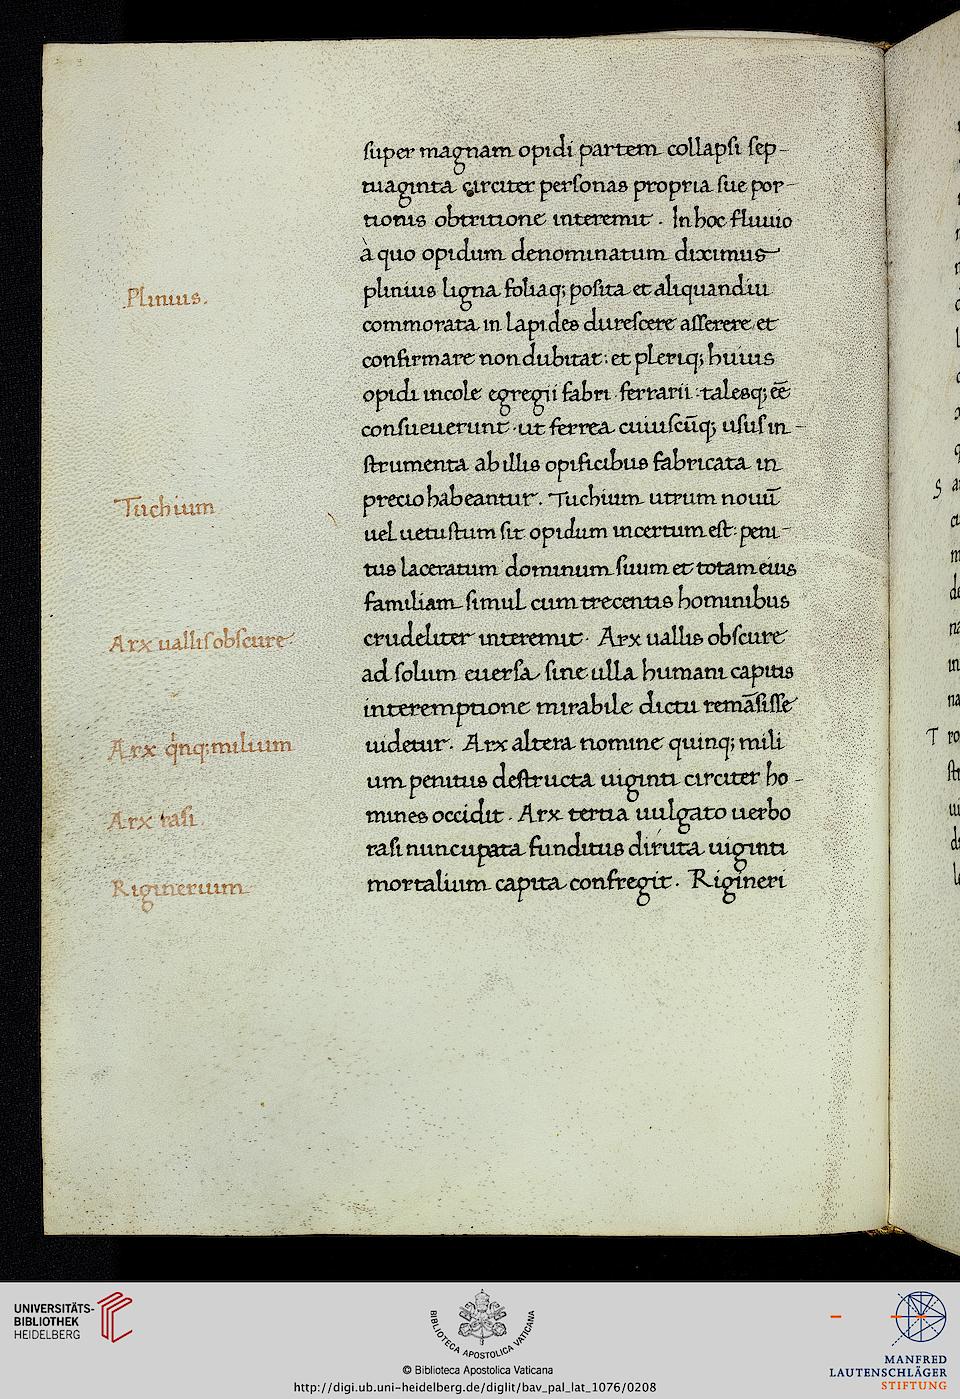 super magnam opidi partem collapsi sep-
tuaginta circiter personas propria sue por-
tionis obtritione interemit. In hoc fluuio
à quo opidum denominatum diximus
Plinius.
plinius ligna foliaq; posita et aliquandiu
commorata in lapides durescere asserere et
confirmare non dubitat: et pleriq; huius
opidi incole egregii fabri ferrarii: talesq; eē
consueuerunt · ut ferrea cuiuscūq; usus in-
strumenta ab illis opificibus fabricata in
Tuchium
precio habeantur. Tuchium utrum nouū
uel uetustum sit opidum incertum est: peni-
tus laceratum dominum suum et totam eius
familiam simul cum trecentis hominibus
Arx uallis obscure
crudeliter interemit. Arx uallis obscure
ad solum euersa sine ulla humani capitis
interemptione mirabile dictu remāsisse
Arx qͥnq; milium
uidetur. Arx altera nomine quinq; mili
um penitus destructa uiginti circiter ho-
Arx rasi
mines occidit. Arx tertia uulgato uerbo
rasi nuncupata funditus diruta uiginti
Riginerium
mortalium capita confregit. Rigineri
S
T
UNIVERSITÄTS-
BIBLIOTHEK
HEIDELBERG
BIBLIOTECA APOSTOLICA VATICANA
© Biblioteca Apostolica Vaticana
http://digi.ub.uni-heidelberg.de/diglit/bav_pal_lat_1076/0208
MANFRED
LAUTENSCHLÄGER
STIFTUNG